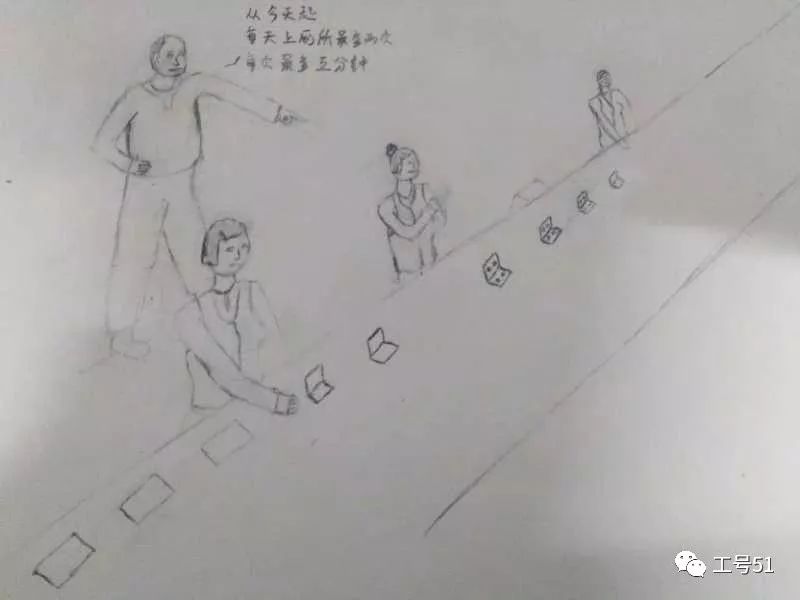 从今天起
每天上厕所最多两次
每次最多五分钟
工号51